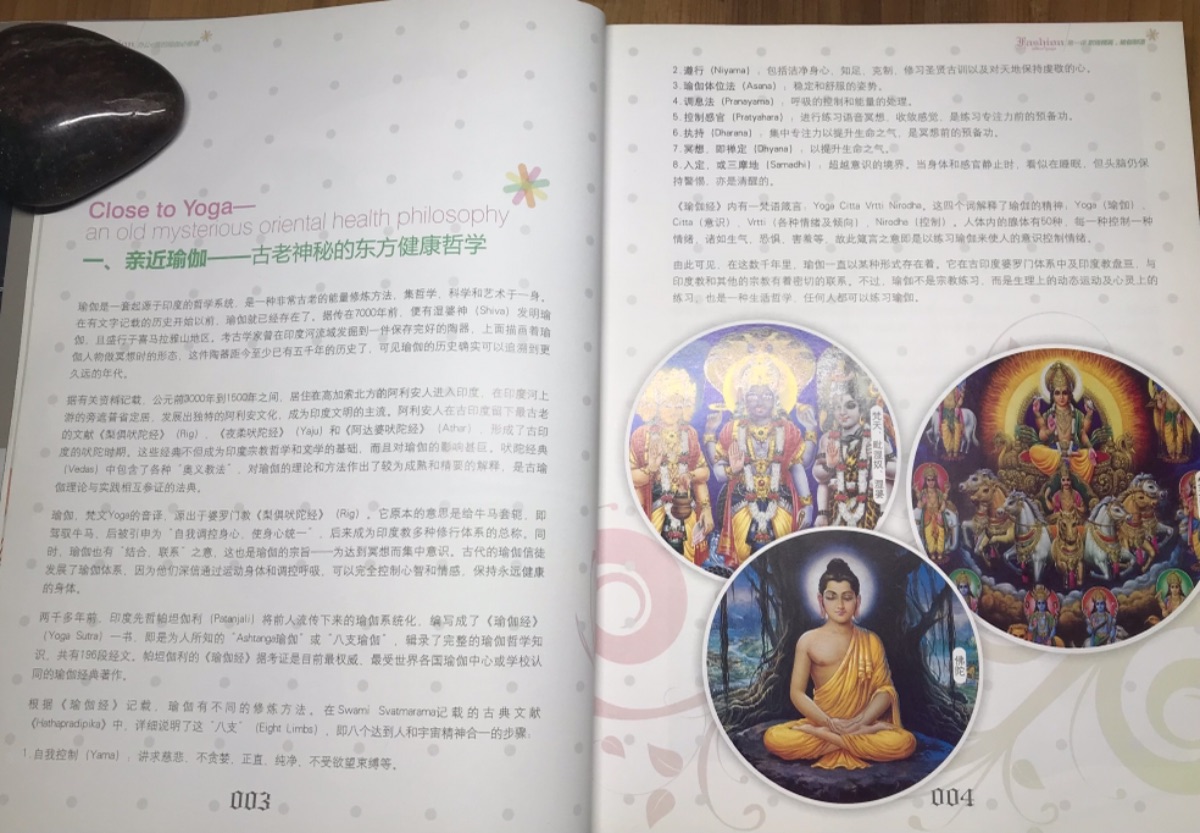 Close to Yoga—
an old mysterious oriental health philosophy
一、亲近瑜伽——古老神秘的东方健康哲学
瑜伽是一套起源于印度的哲学系统，是一种非常古老的能量修炼方法，集哲学、科学和艺术于一身。
在有文字记载的历史开始以前，瑜伽就已经存在了。据传在7000年前，便有湿婆神（Shiva）发明瑜
伽，且盛行于喜马拉雅山地区。考古学家曾在印度河流域发掘到一件保存完好的陶器，上面描画着瑜
伽人物做冥想时的形态，这件陶器距今至少已有五千年的历史了，可见瑜伽的历史确实可以追溯到更
久远的年代。
据有关资料记载，公元前3000年到1500年之间，居住在高加索北方的阿利安人进入印度，在印度河上
游的旁遮普省定居，发展出独特的阿利安文化，成为印度文明的主流。阿利安人在古印度留下最古老
的文献《梨俱吠陀经》（Rig）、《夜柔吠陀经》（Yaju）和《阿达婆吠陀经》（Athar），形成了古印
度的吠陀时期。这些经典不但成为印度宗教哲学和文学的基础，而且对瑜伽的影响甚巨。吠陀经典
（Vedas）中包含了各种“奥义教法”，对瑜伽的理论和方法作出了较为成熟和精要的解释，是古瑜
伽理论与实践相互参证的法典。
瑜伽，梵文Yoga的音译，源出于婆罗门教《梨俱吠陀经》（Rig）。它原本的意思是给牛马套轭，即
驾驭牛马，后被引申为“自我调控身心，使身心统一”，后来成为印度教多种修行体系的总称。同
时，瑜伽也有“结合、联系”之意，这也是瑜伽的宗旨——为达到冥想而集中意识。古代的瑜伽信徒
发展了瑜伽体系，因为他们深信通过运动身体和调控呼吸，可以完全控制心智和情感，保持永远健康
的身体。
两千多年前，印度先哲帕坦伽利（Patanjali）将前人流传下来的瑜伽系统化，编写成了《瑜伽经》
（Yoga Sutra）一书，即是为人所知的“Ashtanga瑜伽”或“八支瑜伽”，辑录了完整的瑜伽哲学知
识，共有196段经文。帕坦伽利的《瑜伽经》据考证是目前最权威、最受世界各国瑜伽中心或学校认
同的瑜伽经典著作。
根据《瑜伽经》记载，瑜伽有不同的修炼方法。在Swami Svatmarama记载的古典文献
《Hathapradipika》中，详细说明了这“八支”（Eight Limbs），即八个达到人和宇宙精神合一的步骤：
1.自我控制（Yama）：讲求慈悲、不贪婪、正直、纯净、不受欲望束缚等。
003
Fashion
2.遵行（Niyama）：包括洁净身心、知足、克制、修习圣贤古训以及对天地保持虔敬的心。
3.瑜伽体位法（Asana）：稳定和舒服的姿势。
4.调息法（Pranayama）：呼吸的控制和能量的处理。
5.控制感官（Pratyahara）：进行练习语音冥想、收敛感觉，是练习专注力前的预备功。
6.执持（Dharana）：集中专注力以提升生命之气，是冥想前的预备功。
7.冥想，即禅定（Dhyana）：以提升生命之气。
8.入定，或三摩地（Samadhi）：超越意识的境界。当身体和感官静止时，看似在睡眠，但头脑仍保
持警惕，亦是清醒的。
《瑜伽经》内有一梵语箴言，Yoga Citta Vrtti Nirodha。这四个词解释了瑜伽的精神，Yoga（瑜伽）、
Citta（意识）、Vrtti（各种情绪及倾向）、Nirodha（控制）。人体内的腺体有50种，每一种控制一种
情绪，诸如生气、恐惧、害羞等，故此箴言之意即是以练习瑜伽来使人的意识控制情绪。
由此可见，在这数千年里，瑜伽一直以某种形式存在着。它在古印度婆罗门体系中及印度教盘亘，与
印度教和其他的宗教有着密切的联系。不过，瑜伽不是宗教练习，而是生理上的动态运动及心灵上的
练习，也是一种生活哲学，任何人都可以练习瑜伽。
梵天、毗湿奴、湿婆
佛陀
004